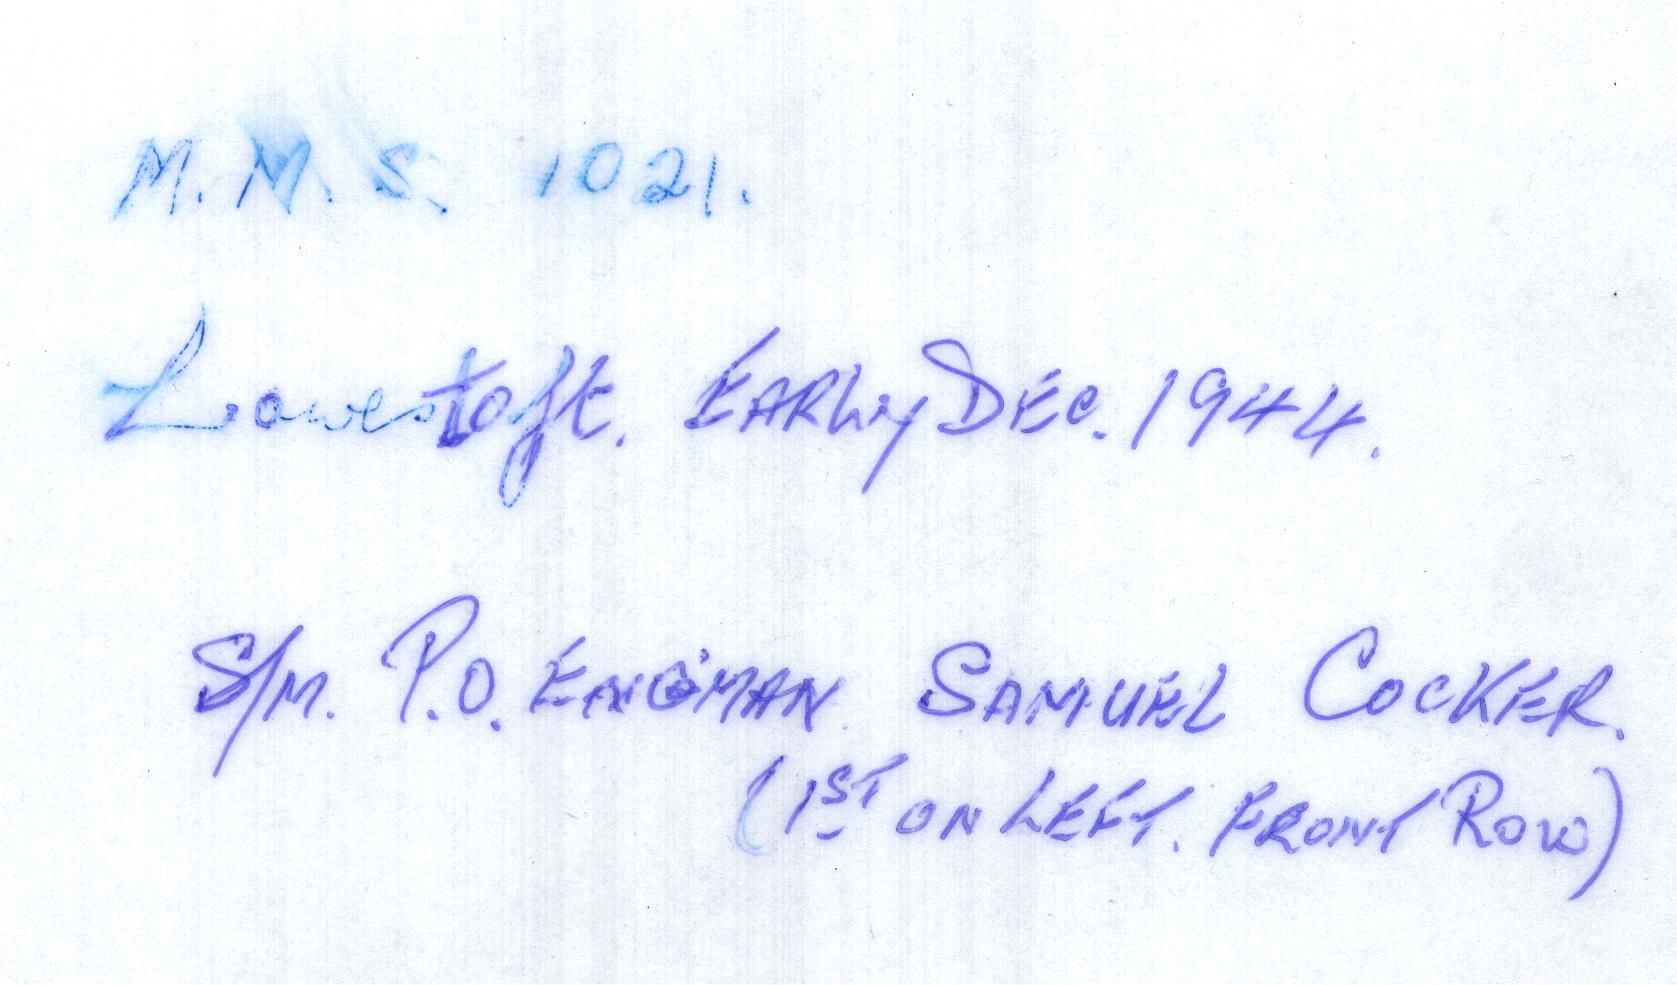 M.M.S. 1021.
Lowestoft. EARLY DEC. 1944.
S/M. P.O. ENGMAN SAMUEL COCKER.
(1ST ON LEFT. FRONT ROW)